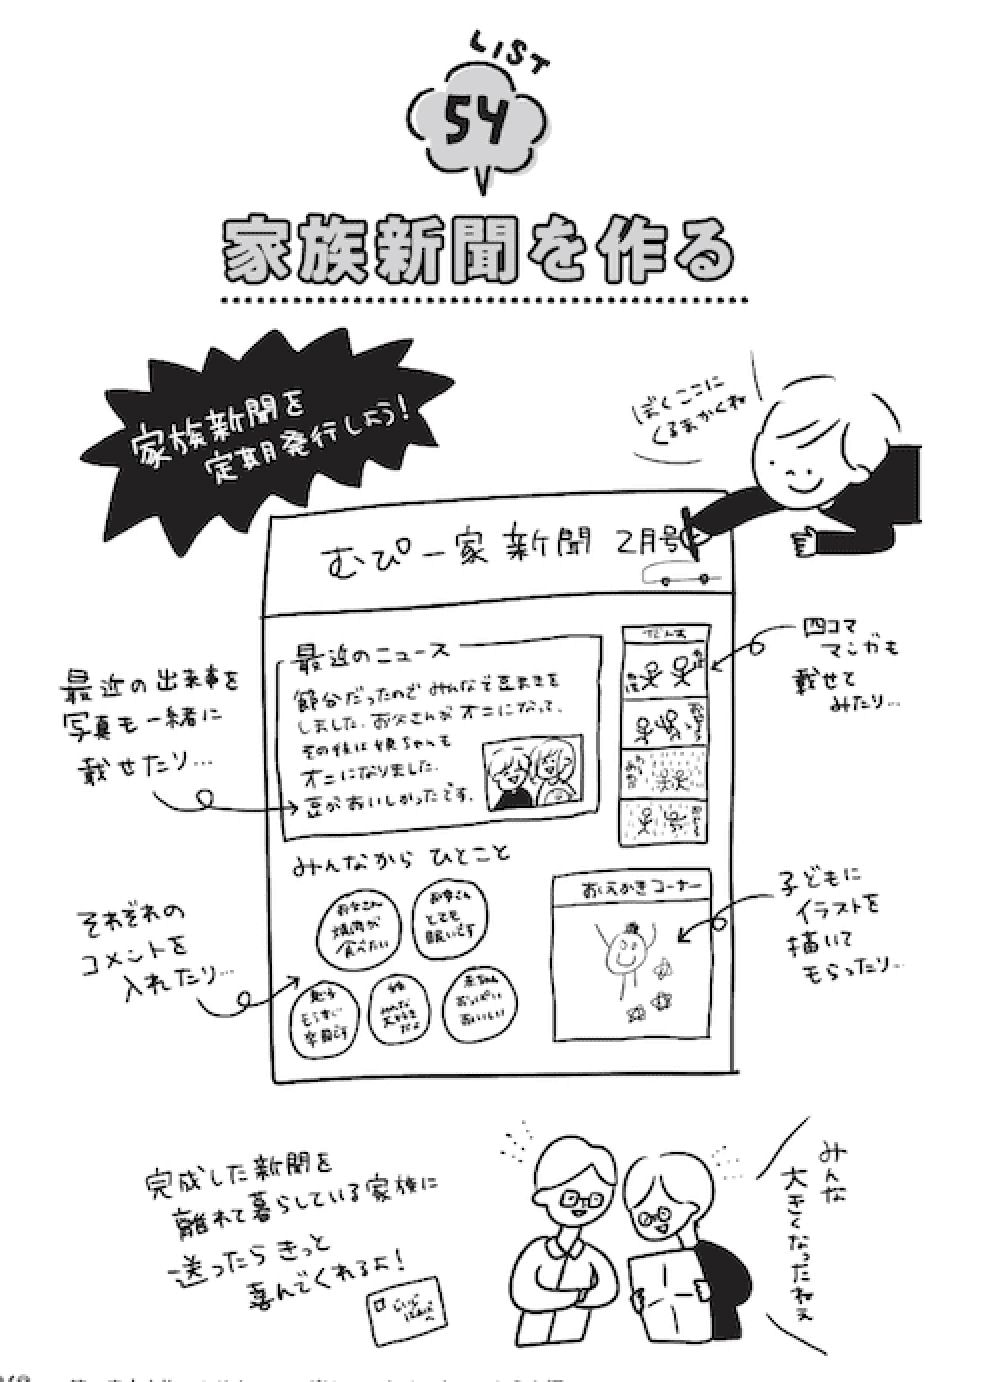 LIST
54
家族新聞を作る
家族新聞を
定期発行しよう!
ぼくここに
くるまかくね
むぴー家新聞 2月号
最近の出来事を
写真も一緒に
載せたり…
最近のニュース
節分だったのでみんなで豆まきを
しました。お父さんがオニになって、
その後は娘ちゃんも
オニになりました。
豆がおいしかったです。
四コマ
マンガも
載せて
みたり…
みんなから ひとこと
お父さん
焼肉が
食べたい
お母さん
とても
眠いです
もうすぐ
卒園です
みんな
大好き
だよ
赤ちゃん
おっぱい
おいしい
それぞれの
コメントを
入れたり…
おえかきコーナー
子どもに
イラストを
描いて
もらったり…
完成した新聞を
離れて暮らしている家族に
送ったらきっと
喜んでくれるよ!
みんな
大きくなったねぇ